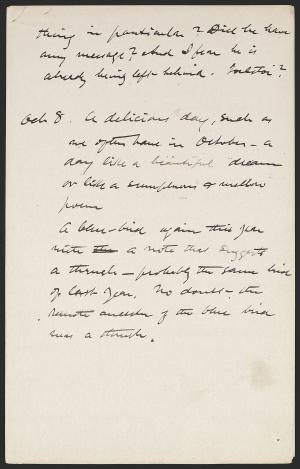 thing in particular? Did he have
any message? And I fear he is
already being left behind. Tolstoi?
Oct 8. A delicious day, such as
we often have in October - a
day like a beautiful dream
or like a sumptuous & mellow
poem
A blue-bird again this year
with a note that suggests
a thrush - probably the same bird
of last year. No doubt, the
remote ancestor of the blue bird
was a thrush.